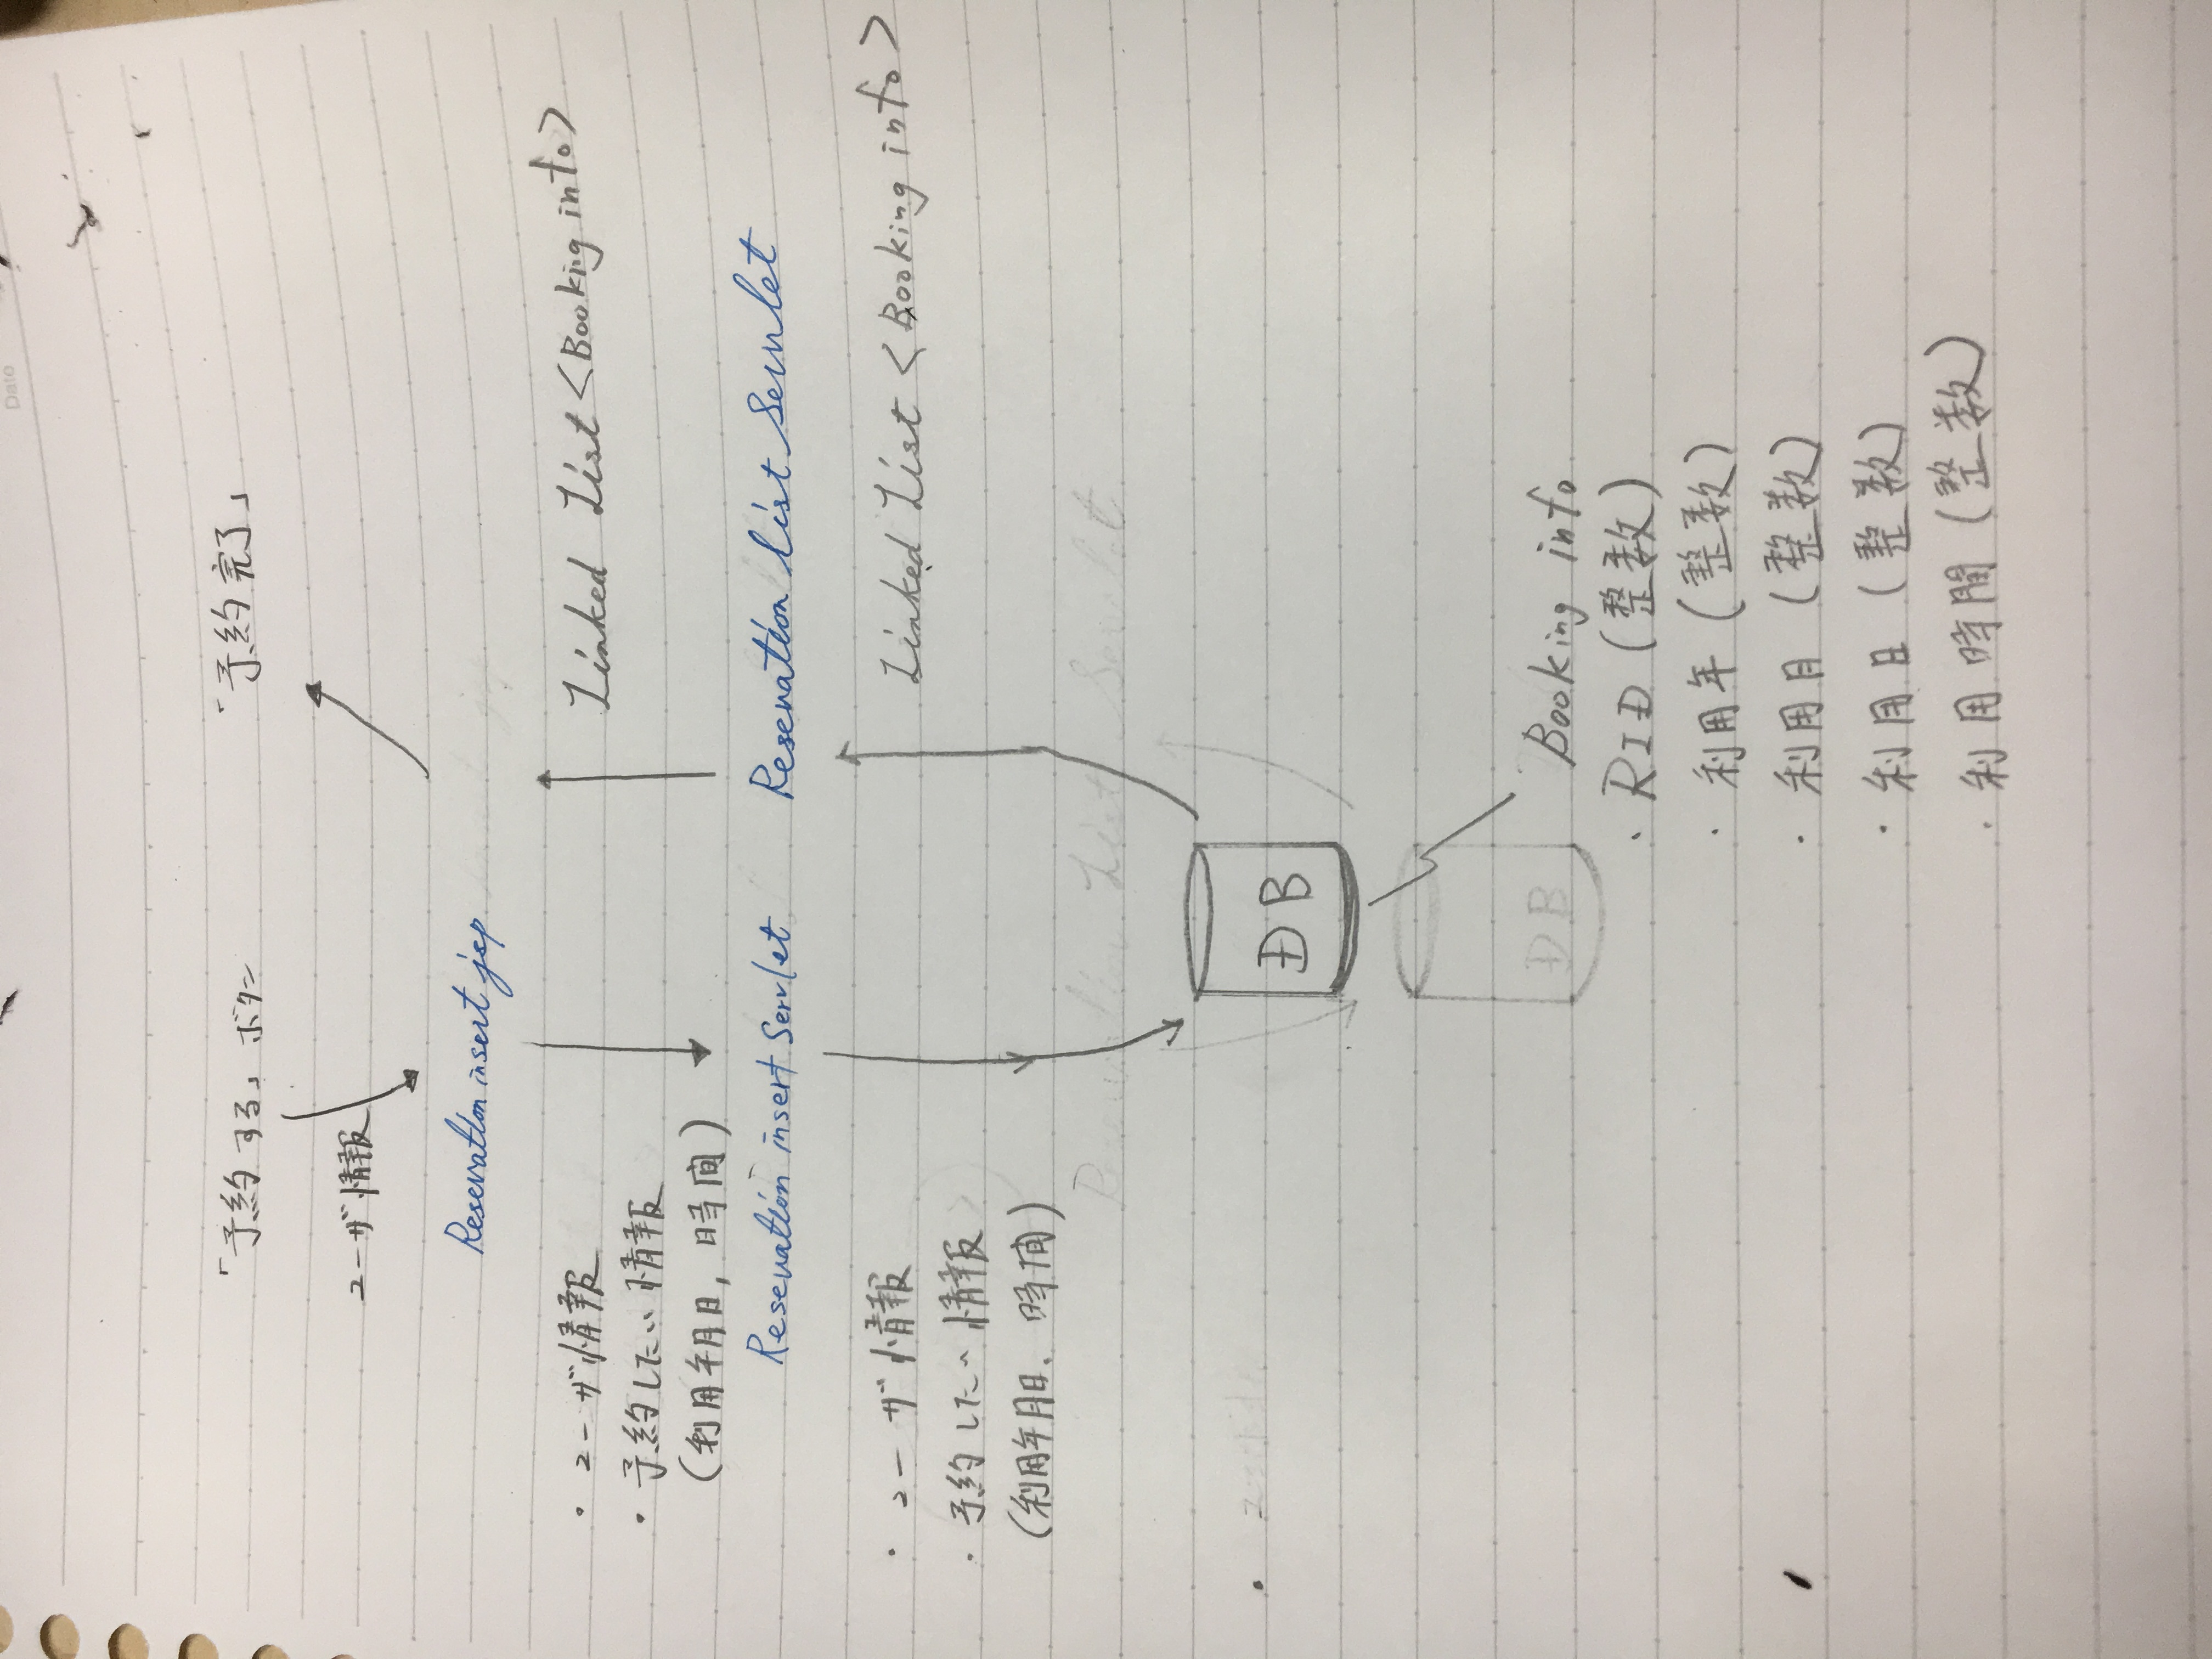 Date
「予約する」ボタン
「予約完了」
ユーザ情報
Resevation insert jsp
・ユーザ情報
・予約したい情報
(利用年月日, 時間)
Linked List <Booking info>
Resevation insert Servlet
Resevation list Servlet
・ユーザ情報
・予約したい情報
(利用年月日. 時間)
Linked List <Booking info>
Reservation List Servlet
DB
DB
Booking info
・RID (整数)
・利用年 (整数)
・利用月 (整数)
・利用日 (整数)
・利用時間 (整数)